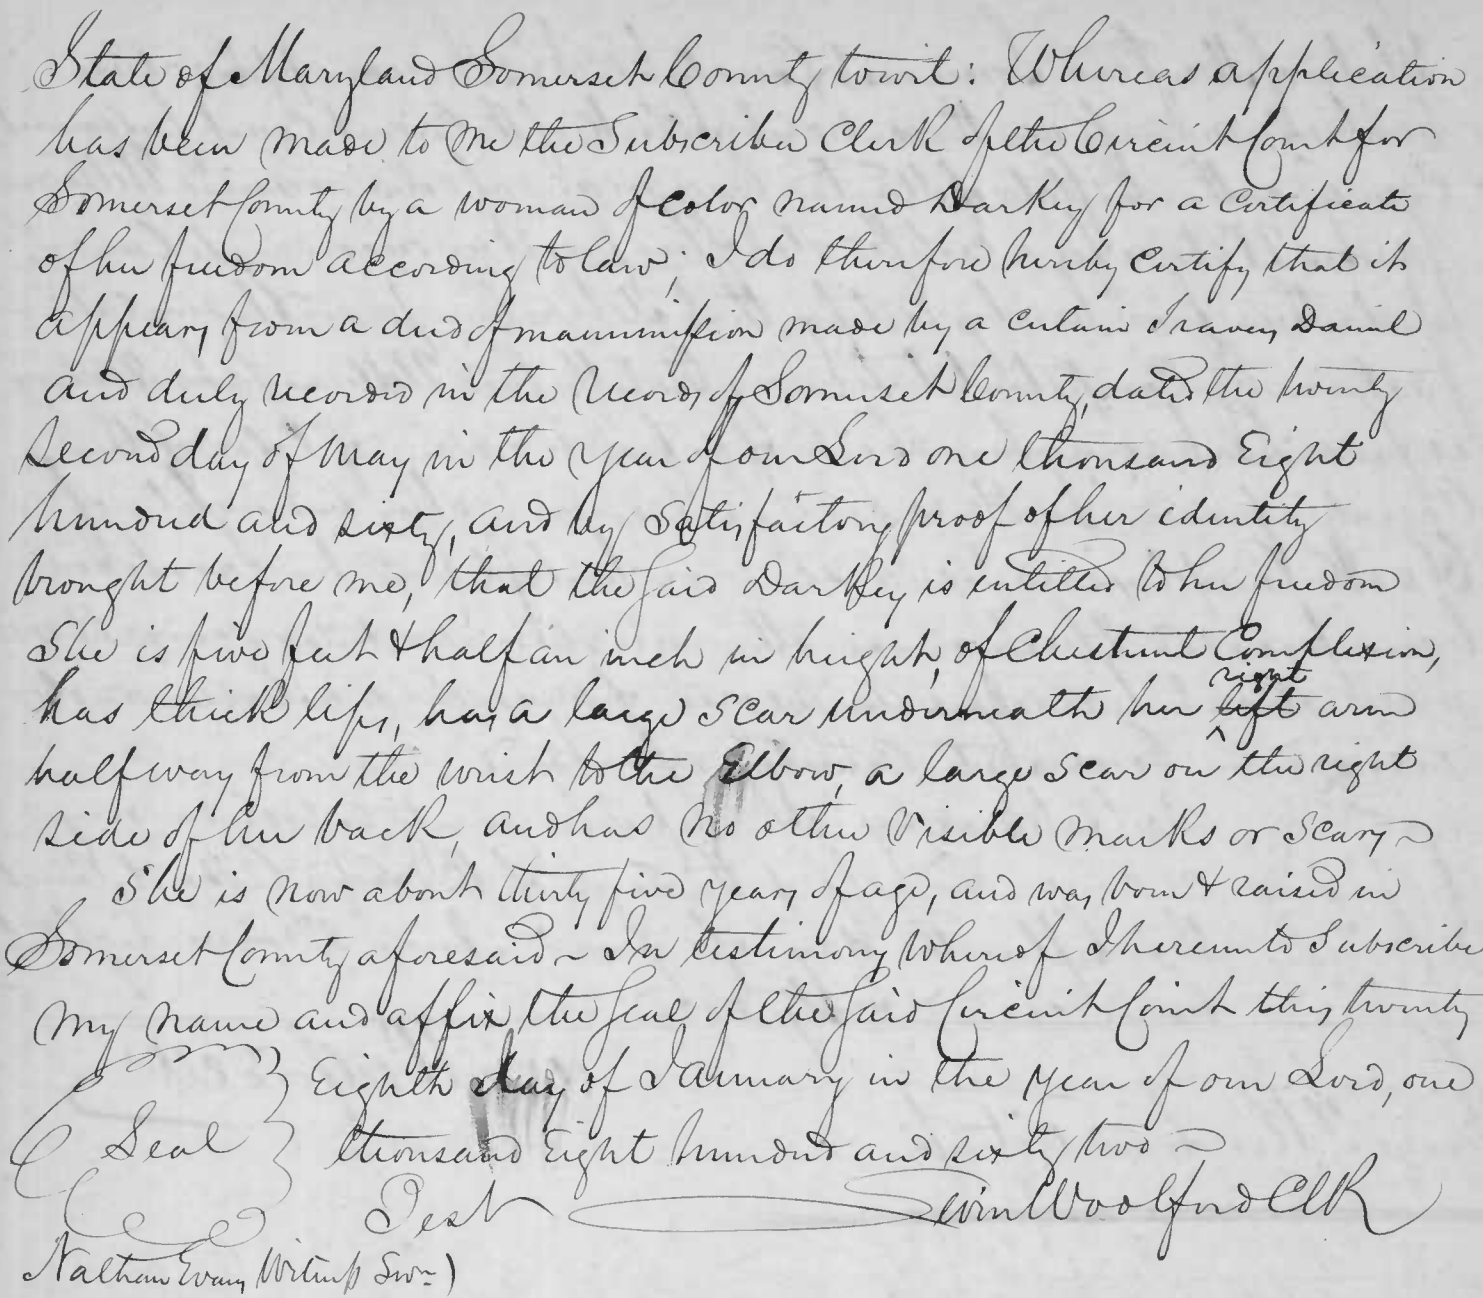 State of Maryland Somerset County towit: Whereas application
has been made to me the Subscriber Clerk of the Circuit Court for
Somerset County by a woman of color named Darkey for a certificate
of her freedom according to law; I do therefore hereby certify that it
appears from a deed of manumission made by a certain Travers Daniel
and duly recorded in the records of Somerset County, dated the twenty
second day of May in the year of our Lord one thousand Eight
hundred and sixty, and by satisfactory proof of her identity
brought before me, that the said Darkey is entitled to her freedom
She is five feet & half an inch in height, of Chestnut Complexion,
has thick lips, has a large scar underneath her left right arm
half way from the wrist to the Elbow, a large scar on the right
side of her back, and has no other visible marks or scars~
She is now about thirty five years of age, and was born & raised in
Somerset County aforesaid~ In testimony whereof I hereunto Subscribe
my name and affix the seal of the said Circuit Court this twenty
Eighth day of January in the year of our Lord, one
thousand Eight hundred and sixty two~
Seal
Test Levin Woolford Clk
Nathan Evans Witness Swn)